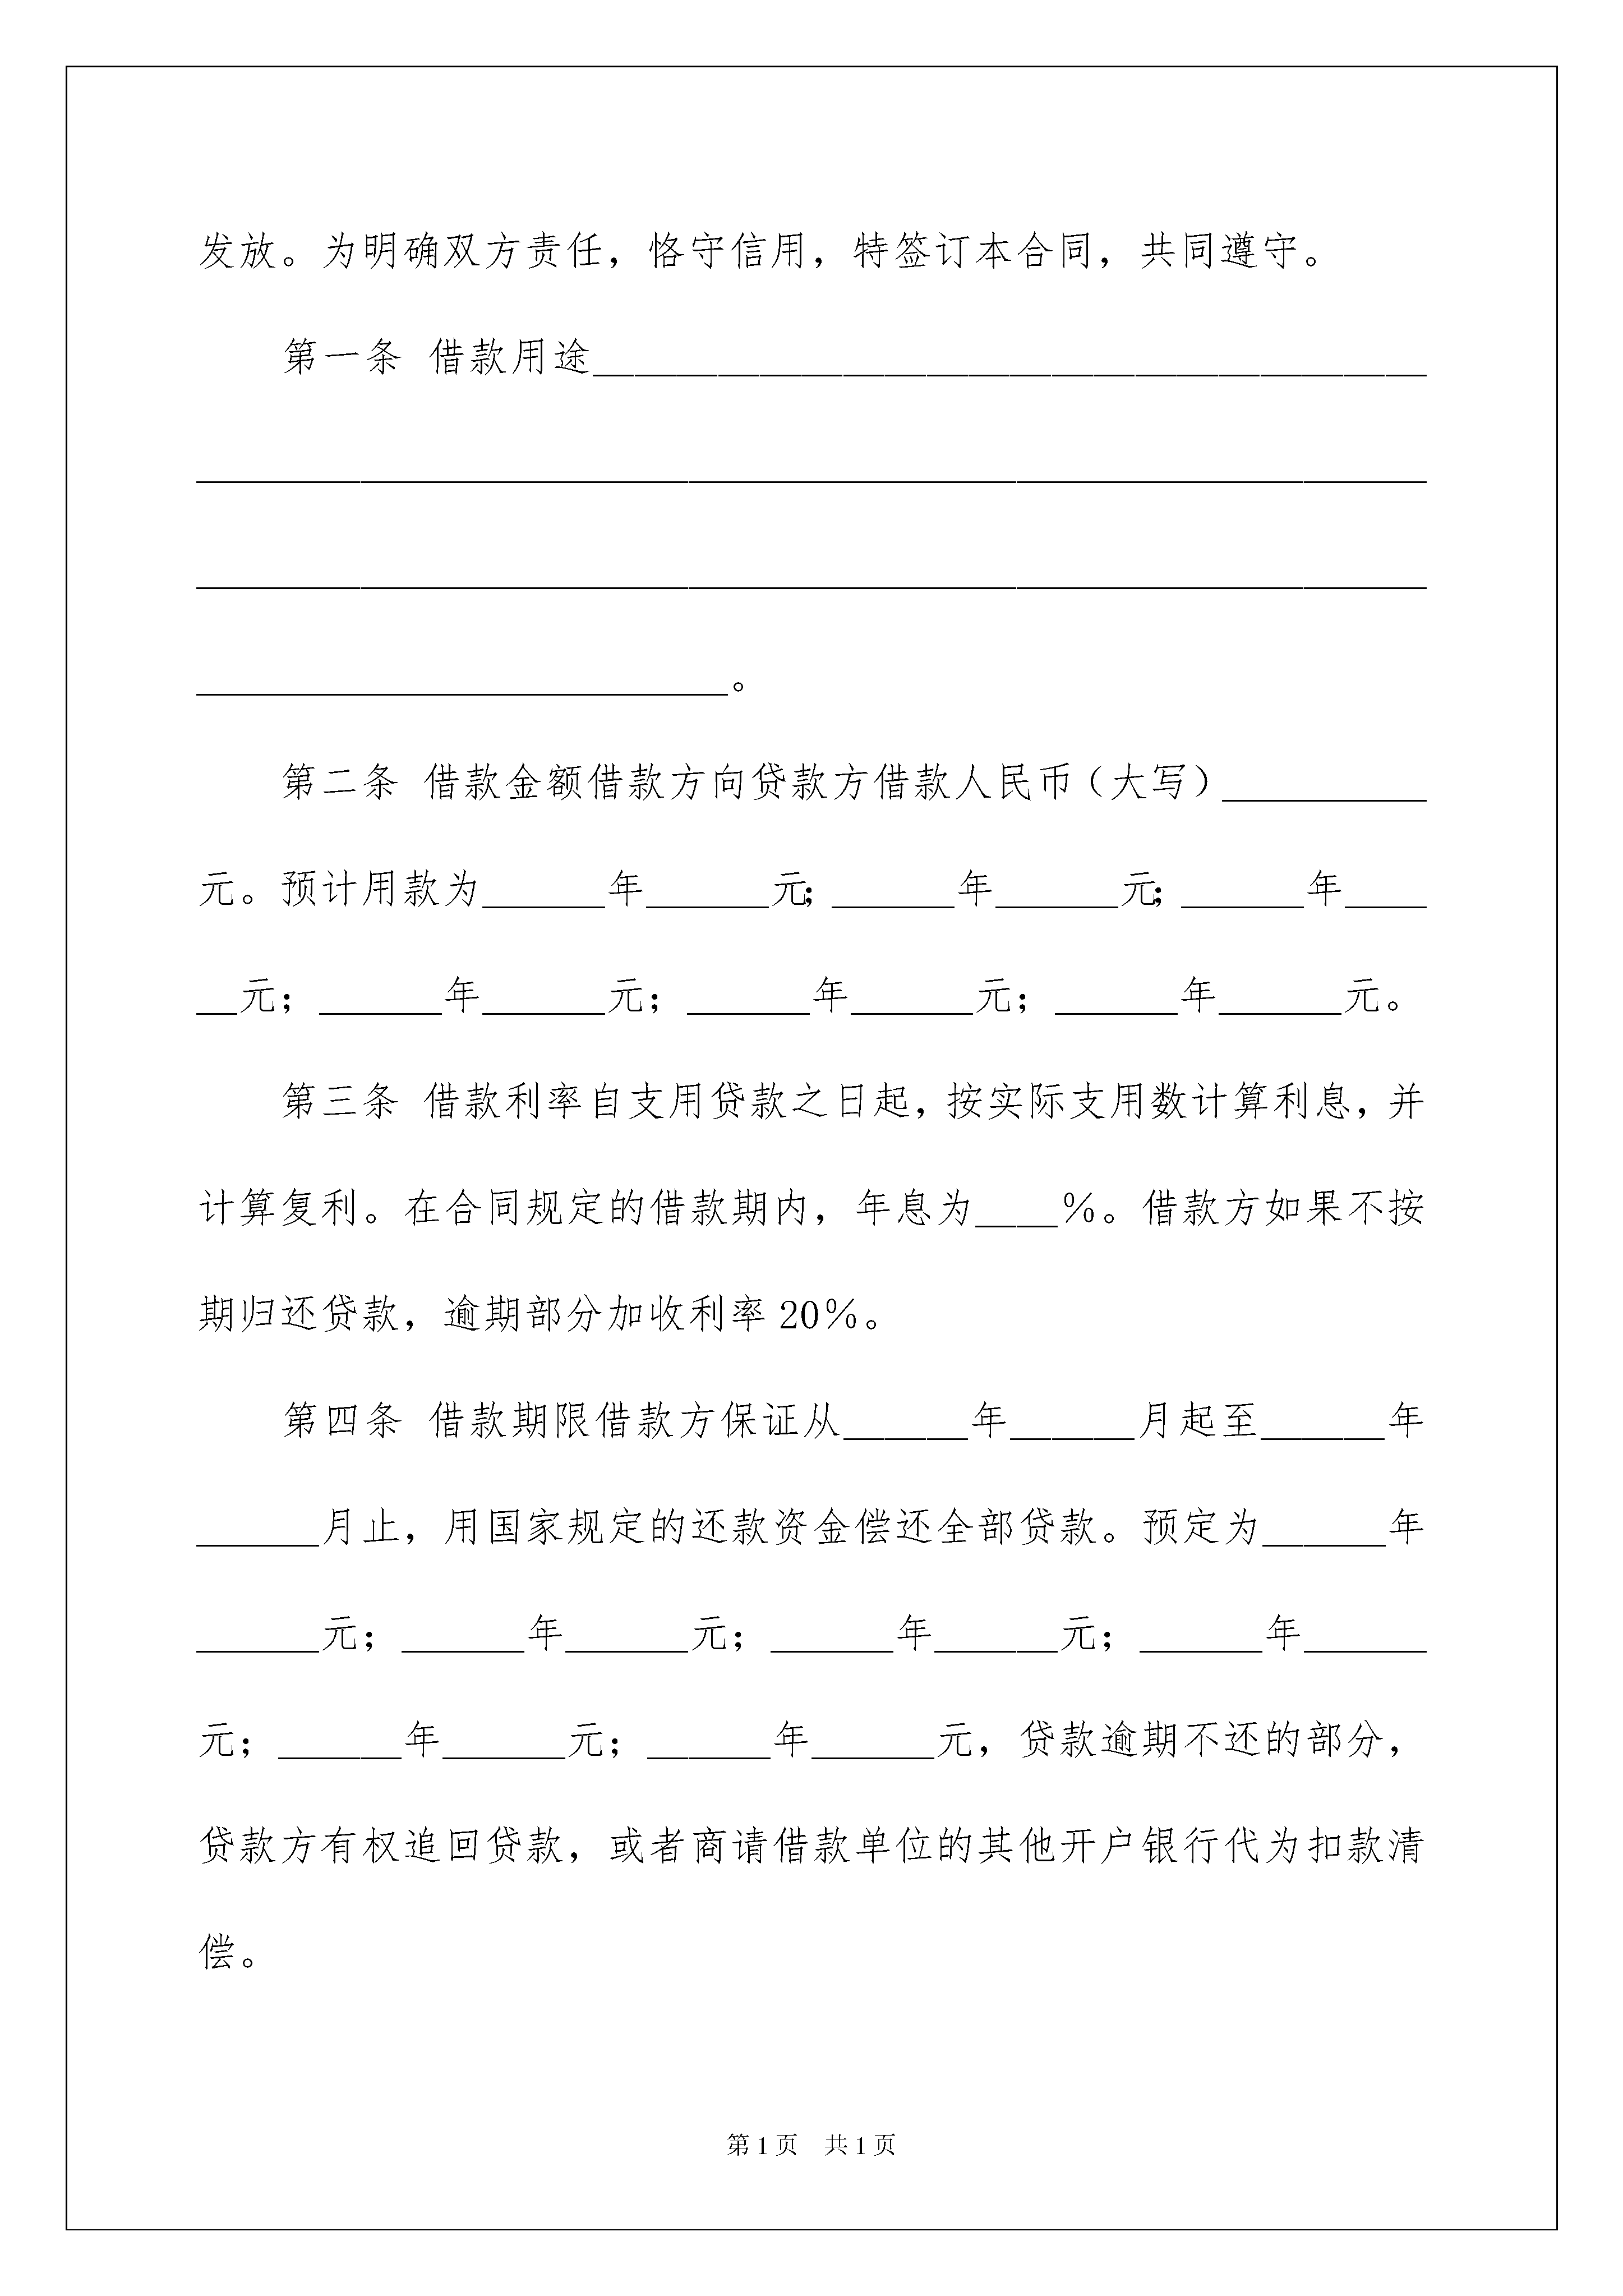 发放。为明确双方责任，恪守信用，特签订本合同，共同遵守。
第一条 借款用途________________________________________
____________________________________________________________
____________________________________________________________
__________________________。
第二条 借款金额借款方向贷款方借款人民币（大写）__________
元。预计用款为______年______元；______年______元；______年____
__元；______年______元；______年______元；______年______元。
第三条 借款利率自支用贷款之日起，按实际支用数计算利息，并
计算复利。在合同规定的借款期内，年息为____％。借款方如果不按
期归还贷款，逾期部分加收利率20％。
第四条 借款期限借款方保证从______年______月起至______年
______月止，用国家规定的还款资金偿还全部贷款。预定为______年
______元；______年______元；______年______元；______年______
元；______年______元；______年______元，贷款逾期不还的部分，
贷款方有权追回贷款，或者商请借款单位的其他开户银行代为扣款清
偿。
第1页 共1页